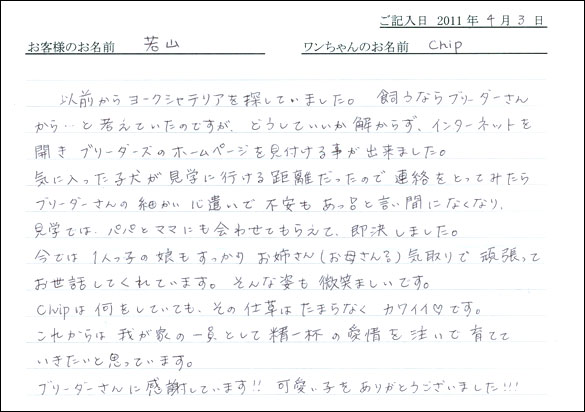 ご記入日 2011年4月3日
お客様のお名前 若山 ワンちゃんのお名前 Chip
以前からヨークシャテリアを探していました。 飼うならブリーダーさん
から…と考えていたのですが、どうしていいか解からず、インターネットを
開き ブリーダーズのホームページを見付ける事が出来ました。
気に入った子犬が見学に行ける距離だったので連絡をとってみたら
ブリーダーさんの細かい心遣いで不安もあっ言と言い間になくなり、
見学では、パパとママにも会わせてもらえて、即決しました。
今では 1人っ子の娘もすっかり お姉さん(お母さん?)気取りで 頑張って
お世話してくれています。 そんな姿も微笑ましいです。
Chipは何をしていても、その仕草はたまらなく カワイイ♡です。
これからは 我が家の一員として精一杯の愛情を注いで育てて
いきたいと思っています。
ブリーダーさんに感謝しています!! 可愛い子をありがとうございました!!!